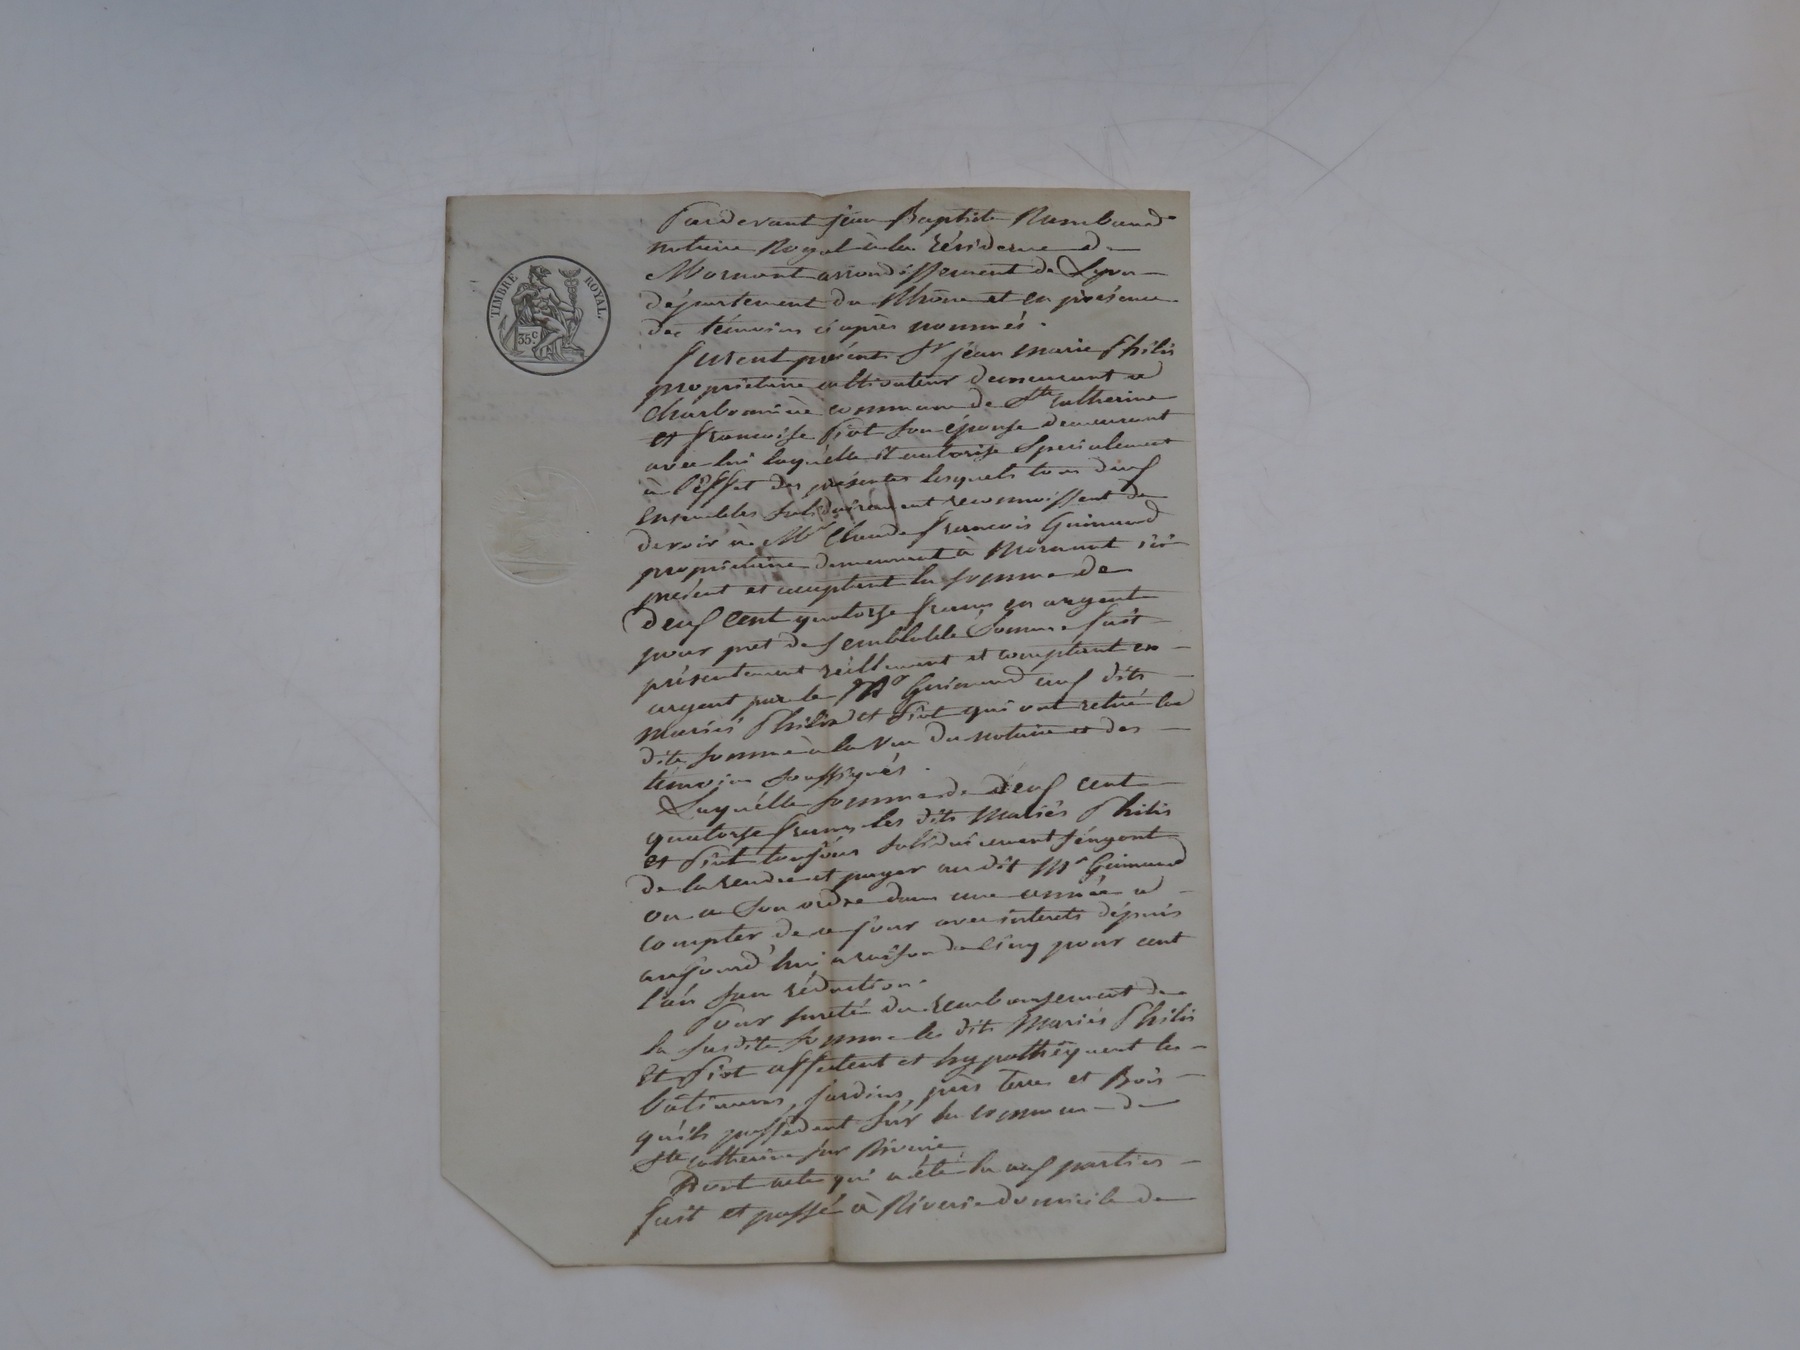 TIMBRE ROYAL.
35 c.
Pardevant jean Baptiste Rambaud
notaire Royal à la résidence de
Mornant arrondissement de Lyon
département du Rhône et en présence
des témoins ci après nommés.
furent présents Sr jean marie Philis
propriétaire cultivateur demeurant a
Charbonnière commune de Ste Catherine
et françoise Piot son épouse demeurant
avec lui laquelle il autorise specialement
à l'effet des présentes lesquels tous deux
ensembles solidairement reconnoissent de
devoir à Mr Claude françois Guimand
propriétaire demeurant à Mornant ici
présent et acceptant la somme de
deux cent quatorze francs en argent
pour pret de semblable somme fait
présentement réellement et comptant en
argent par le Mr Guimand aux dits
mariés Philis et Piot qui ont retiré la
dite somme à la vue du notaire et des
témoins soussignés.
Laquelle somme de deux cent
quatorze francs les dits Mariés Philis
et Piot toujours solidairement s'engont
de la rendre et payer au dit Mr Guimand
ou a son ordre dans une année a
compter de ce jour avec interets dépuis
aujourd'hui a raison de cinq pour cent
l'an sans réduction.
Pour sureté du remboursement de
la susdite somme les dits Mariés Philis
et Piot affectent et hypothèquent les
bâtimens, jardins, près terres et Bois
qu'ils possèdent sur la commune de
Ste Catherine sur Riverie
Dont acte qui a été lu aux parties
fait et passé à Riverie domicile de